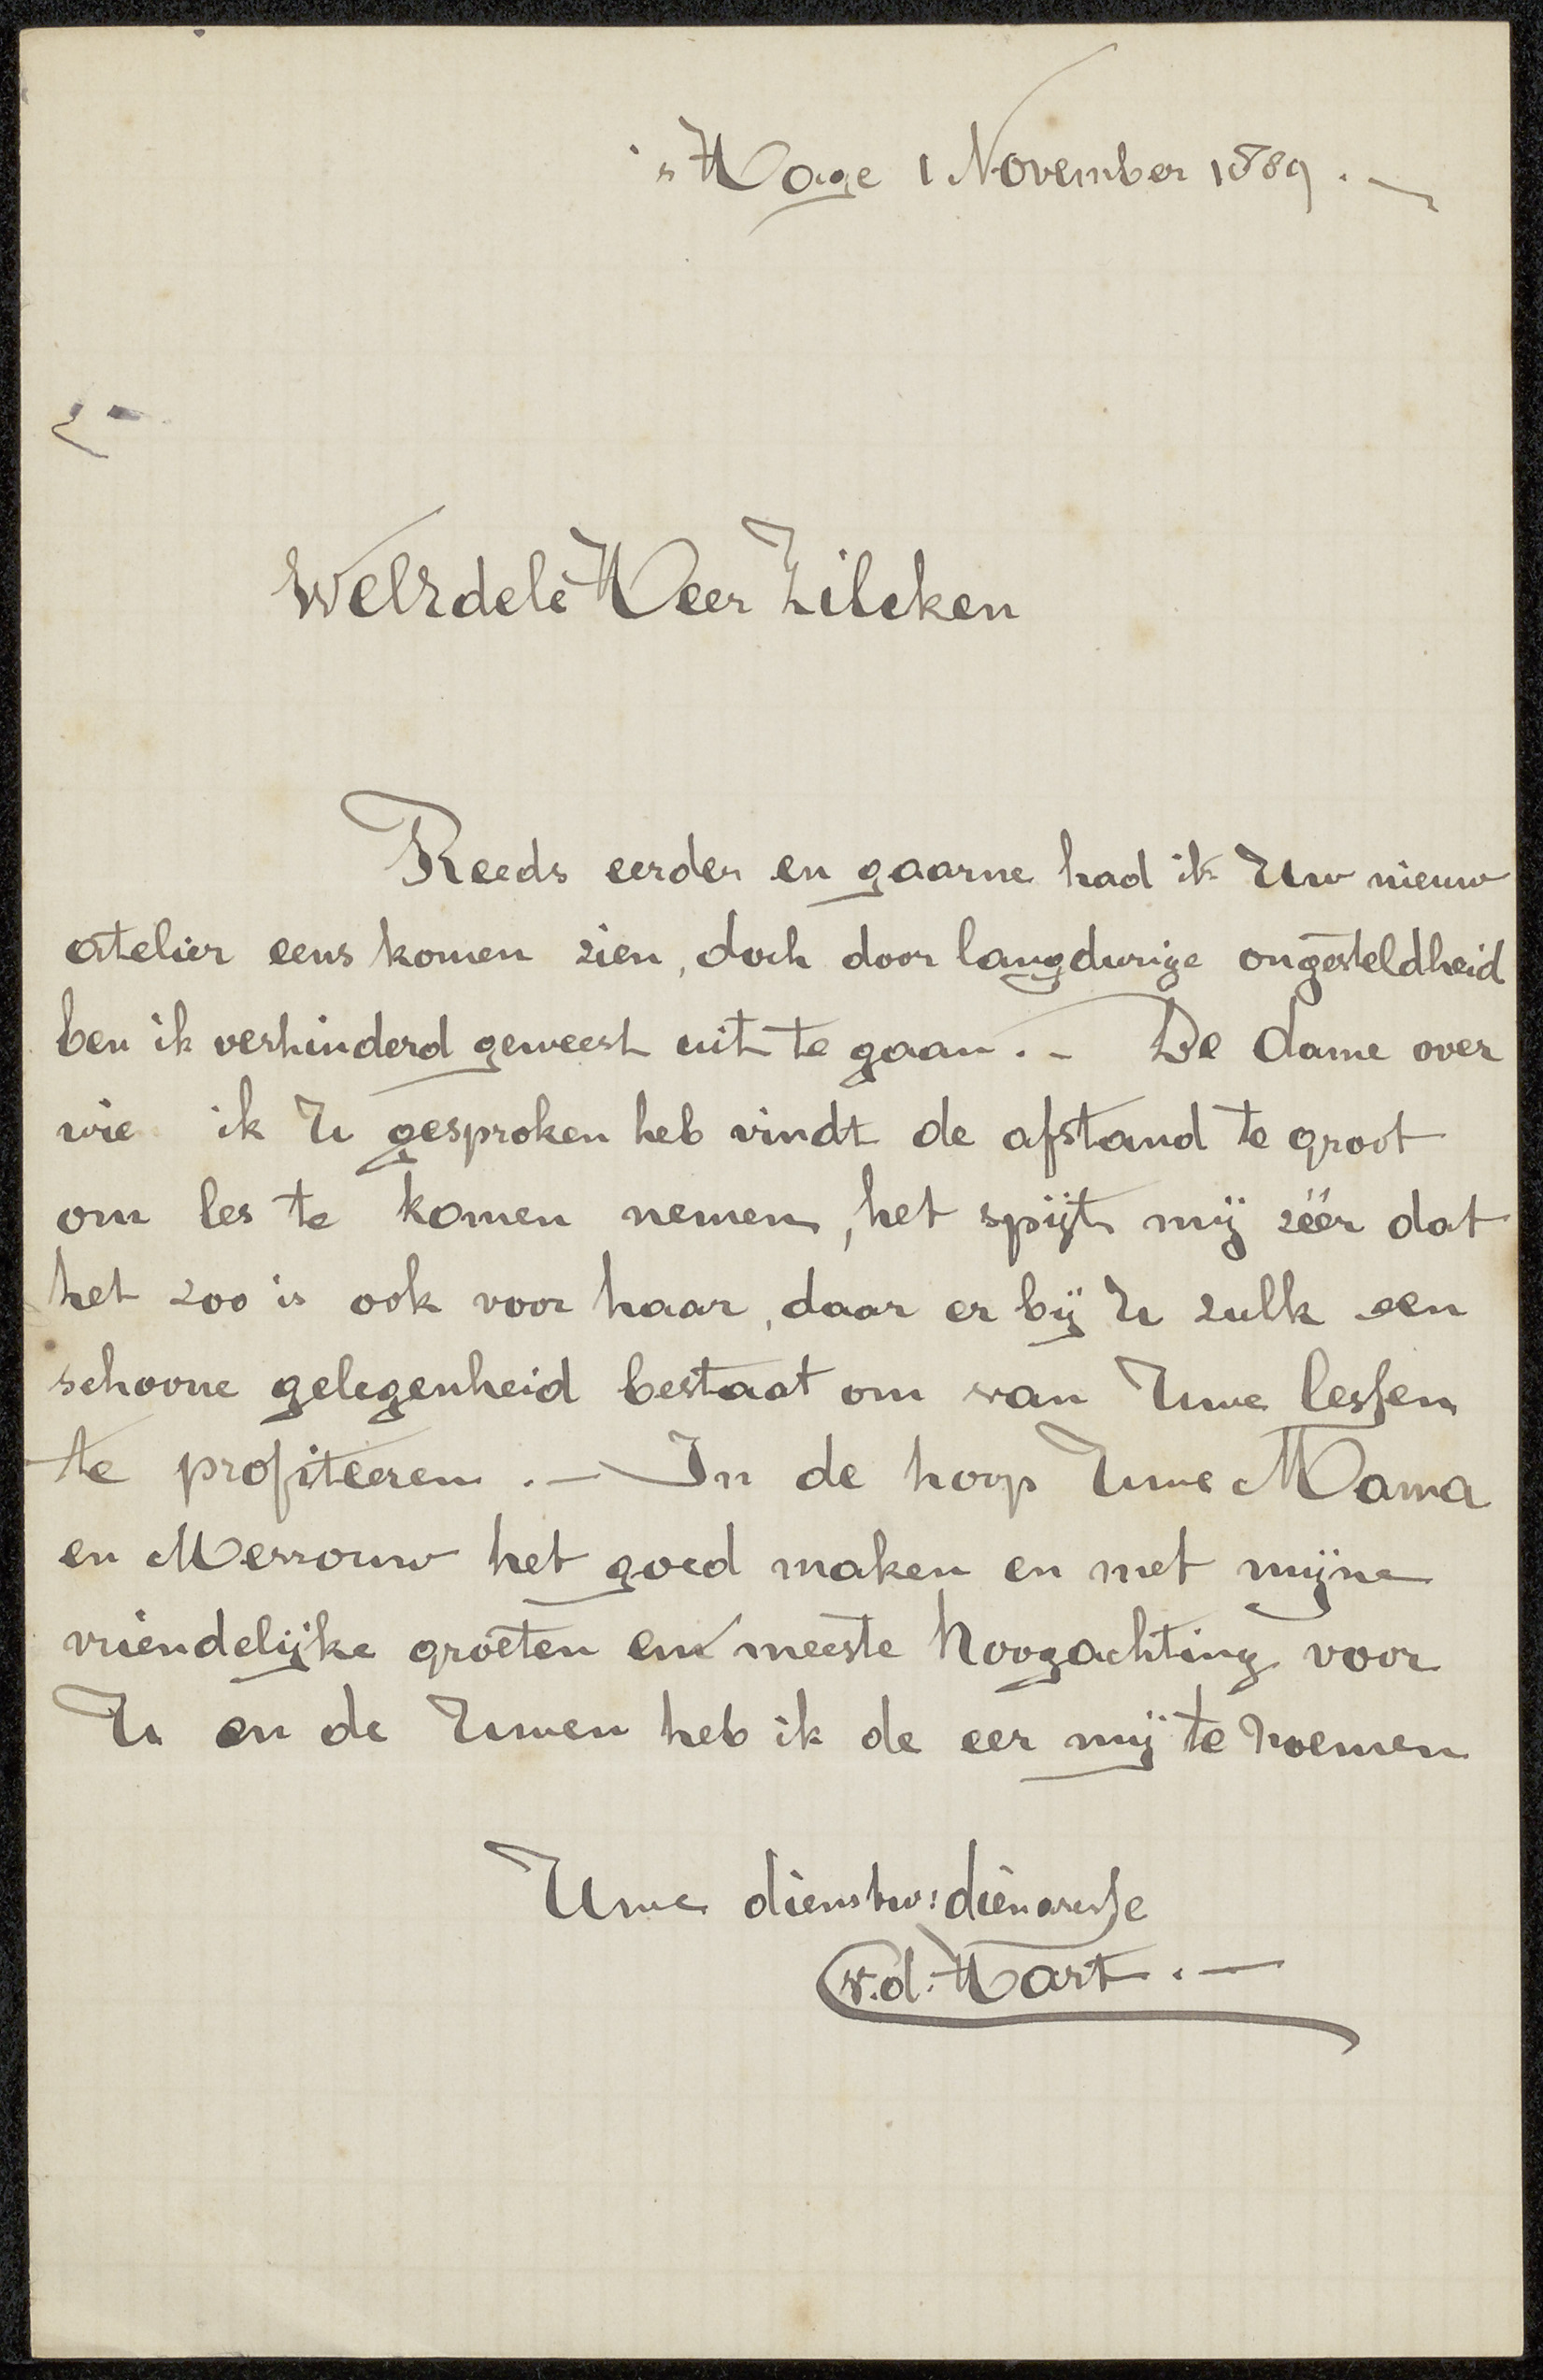 's Hage 1 November 1889. —
WelEdele Heer Zilcken
Reeds eerder en gaarne had ik Uw nieuw
atelier eens komen zien, doch door langdurige ongesteldheid
ben ik verhinderd geweest uit te gaan. — De dame over
wie ik U gesproken heb vindt de afstand te groot
om les te komen nemen, het spijt mij zéér dat
het zoo is ook voor haar, daar er bij U zulk een
schoone gelegenheid bestaat om van Uwe lessen
te profiteeren. — In de hoop Uwe Mama
en Mevrouw het goed maken en met mijne
vriendelijke groeten en meeste hoogachting voor
U en de Uwen heb ik de eer mij te noemen
Uwe dienstw: dienaresse
v.d. Hart. —